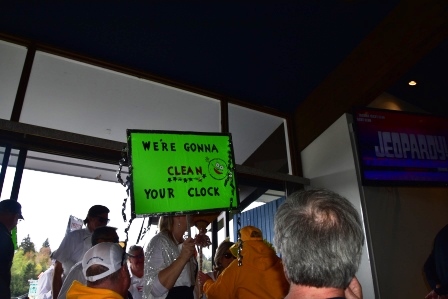 WE'RE GONNA
CLEAN
YOUR CLOCK
JEOPARDY!